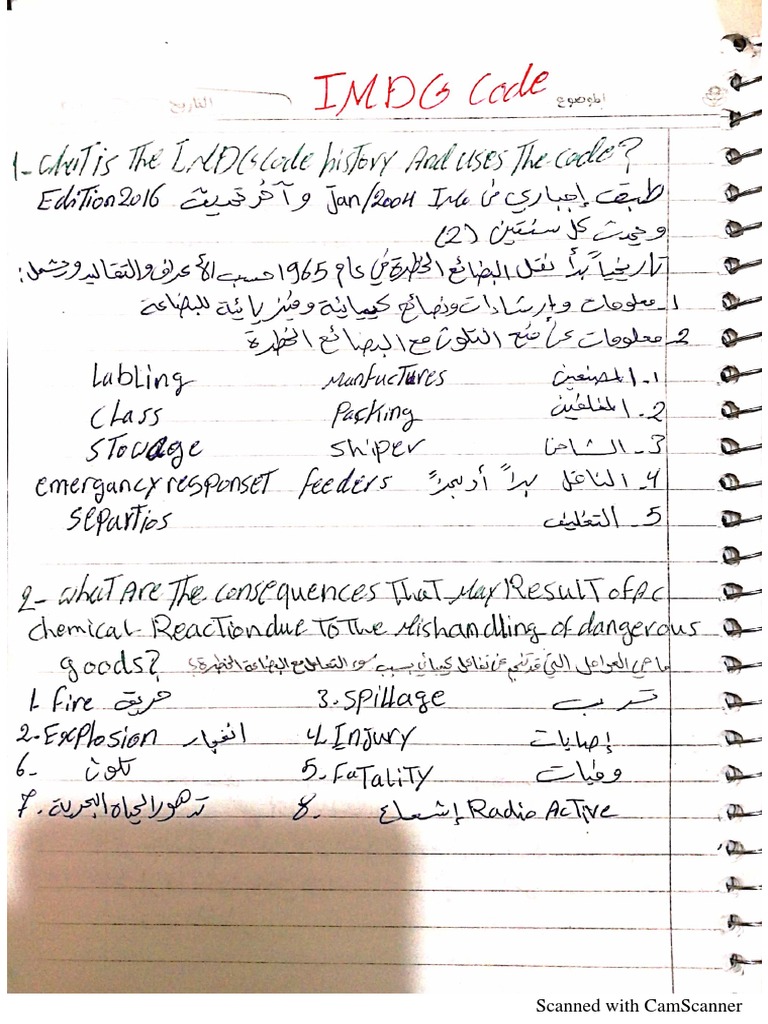 IMDG Code
الموضوع
التاريخ
1- what is The IMDG Code history And uses The code?
طبق إجباري في Jan/2004 Imo و آخر تحديث Edition 2016
و يحدث كل سنتين (2)
تاريخياً بدأ نقل البضائع الخطرة في عام 1965 حسب الأعراف والتقاليد وتشمل:
1- معلومات وإرشادات ونصائح كيميائية وفيزيائية للبضاعة
2- معلومات عن منع التلوث مع البضائع الخطرة
1. المصنعين Manfuctures Labling
2. المغلفين Packing Class
3- الشاحن Shiper Stowage
4- الناقل براً أو بحراً feeders emergancy responset
5- التغليف separtios
2- what Are The consequences That May Result of Ac
chemical Reaction due To The Mishandling of dangerous
goods? ما هي العوامل التي قد تنتج عن تفاعل كيميائي بسبب سوء التعامل مع البضاعة الخطرة؟
1. fire حريق 3. Spillage تسرب
2- Explosion انفجار 4. Injury إصابات
6- تلوث 5. Fatality وفيات
7. تدهور الحياة البحرية 8. إشعاع Radio Active
Scanned with CamScanner